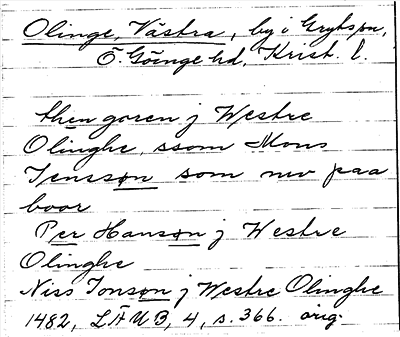 Olinge, Västra, by i Gryts sn,
Ö. Göinge hd, Krist. l.
then goren j Westre
Olinghe, ssom Mons
Jensson som nw paa
boor
Per Hanson j Westre
Olinghe
Niss Jonson j Westre Olinghe
1482, LÄUB, 4, s. 366. orig.